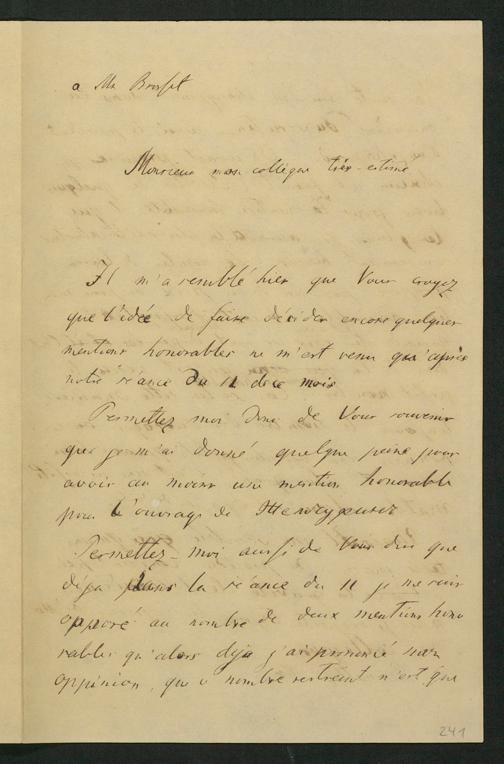 a Mr Brosset
Monsieur mon collègue très-estimé
Il m'a semblé hier que Vous croyez
que l'idée de faire décider encore quelques
mentions honorables ne m'est venu qu'après
notre séance du 11 de ce mois
Permettez moi donc de Vous souvenir
que je m'ai donné quelque peine pour
avoir au moins une mention honorable
pour l'ouvrage de
Permettez-moi aussi de Vous dire que
déja dans la séance du 11 je me suis
opposé au nombre de deux mentions hono
rables qu'alors deja j'ai prononcé mon
oppinion, que ce nombre restreint n'est que
241